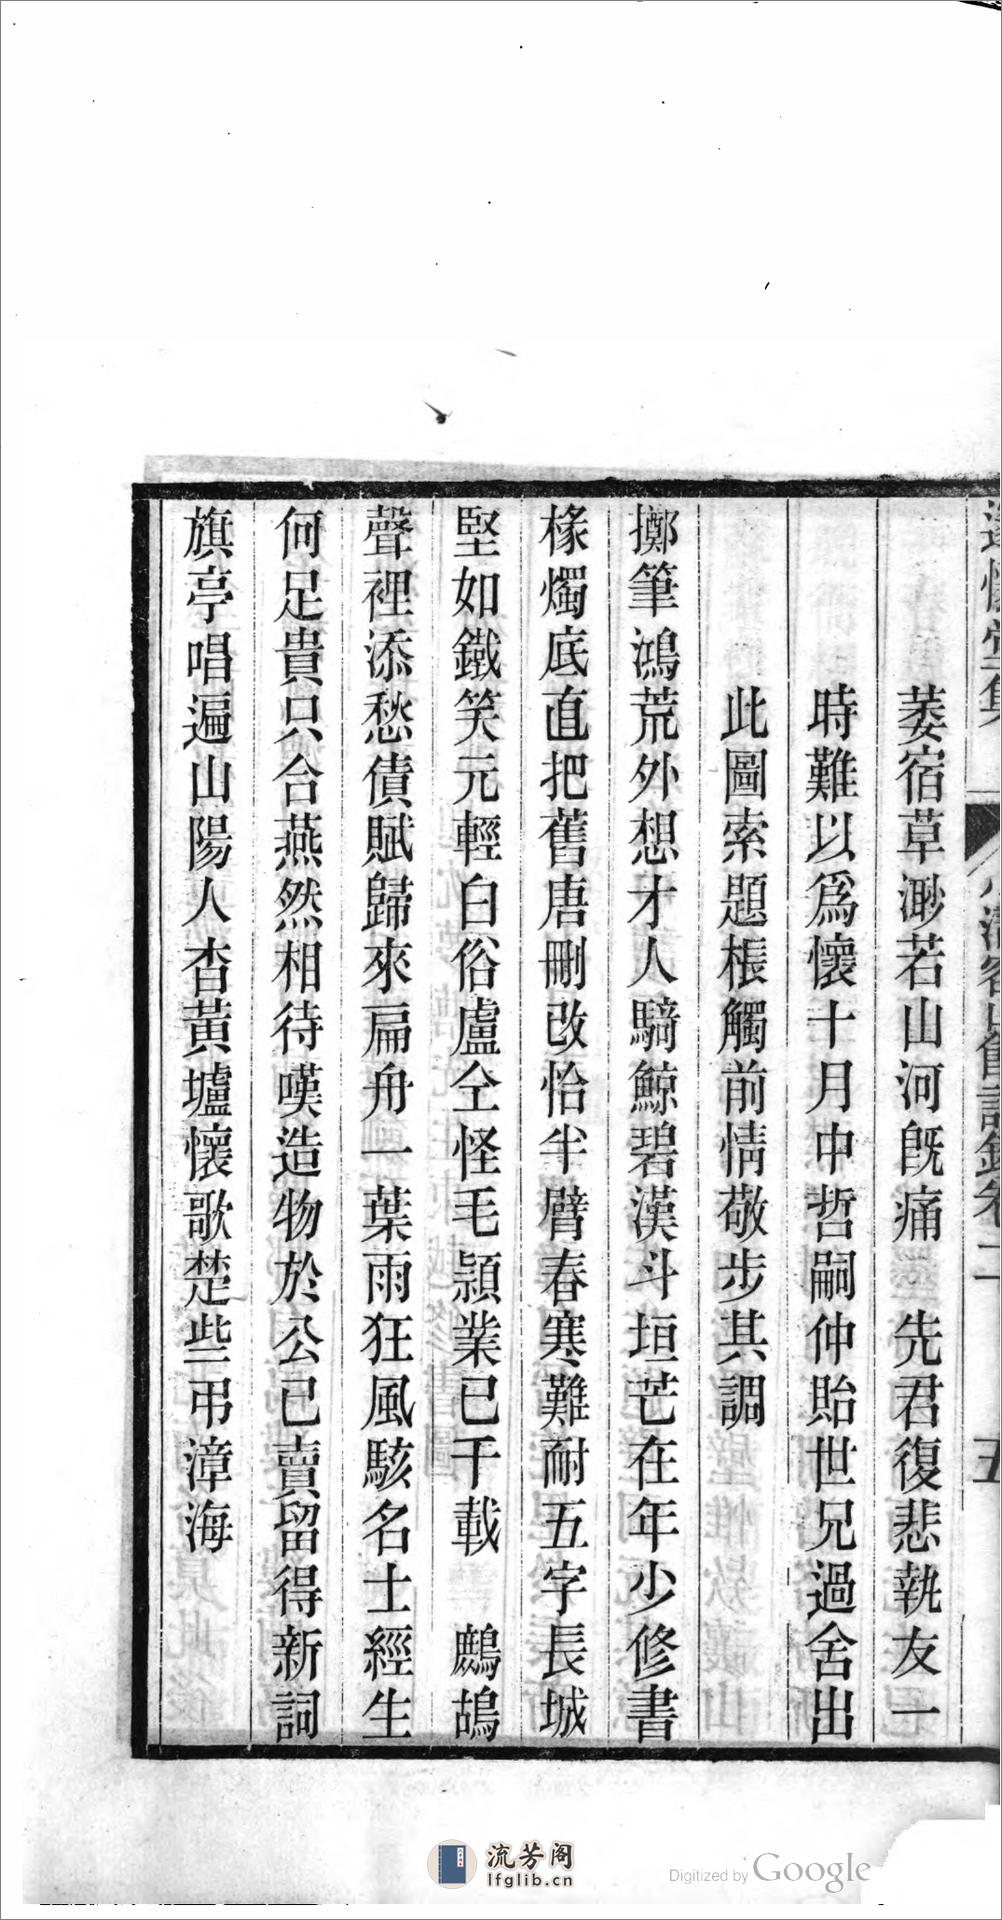 萎宿草渺若山河既痛 先君復悲執友一
時難以爲懷十月中哲嗣仲貽世兄過舍出
此圖索題棖觸前情敬步其調
擲筆鴻荒外想才人騎鯨碧漢斗垣芒在年少修書
椽燭底直把舊唐刪改恰半臂春寒難耐五字長城
堅如鐵笑元輕白俗盧仝怪毛穎業已千載 鷓鴣
聲裡添愁債賦歸來扁舟一葉雨狂風駭名士經生
何足貴只合燕然相待嘆造物於公已賣留得新詞
旗亭唱遍山陽人杳黃壚懷歌楚些弔漳海
五
流芳阁
lfglib.cn
Digitized by Google